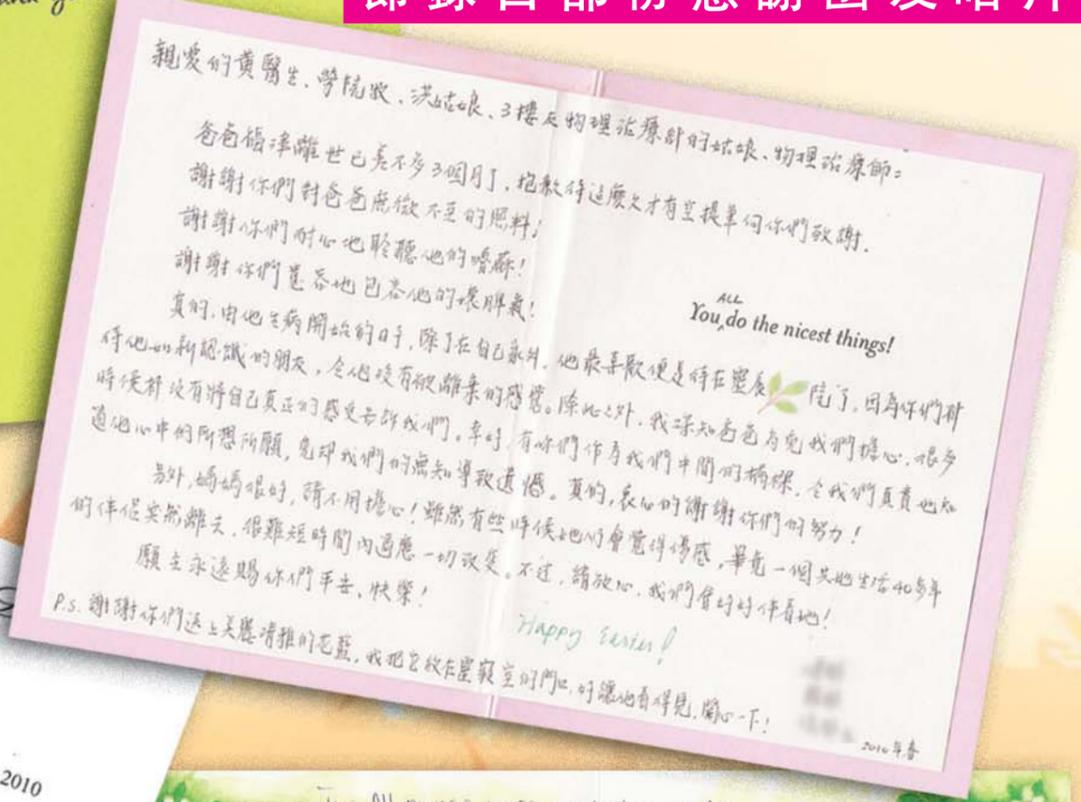 節錄自部份感謝函及咭片
親愛的黃醫生、勞院牧、洪姑娘、3樓及物理治療部的姑娘、物理治療師：
爸爸福澤離世已差不多3個月了，抱歉待這麼久才有空提筆向你們致謝.
謝謝你們對爸爸無微不至的照料！
謝謝你們耐心地聆聽他的嚕囌！
謝謝你們寬容地包容他的壞脾氣！
ALL
You do the nicest things!
真的，由他生病開始的日子，除了在自己家外，他最喜歡便是待在靈 院了，因為你們都
待他如新認識的朋友，令他沒有被離棄的感覺。除此之外，我深知爸爸為免我們擔心，很多
時候都沒有將自己真正的感受告訴我們。幸好，有你們作為我們中間的橋樑，令我們真真地知
道他心中的所想所願，免卻我們的無知導致遺憾。真的，衷心的謝謝你們的努力！
另外，媽媽很好，請不用擔心！雖然有些時候她仍會覺得傷感，畢竟一個共她生活40多年
的伴侶突然離去，很難短時間內適應一切改變。不过，請放心，我們會好好伴着她！
願主永遠賜你們平安、快樂！
Happy Easter!
P.S. 謝謝你們送上美麗清雅的花藍，我把它放在靈寢室的門口，好讓他看得見，開心一下！
2010年春
2010